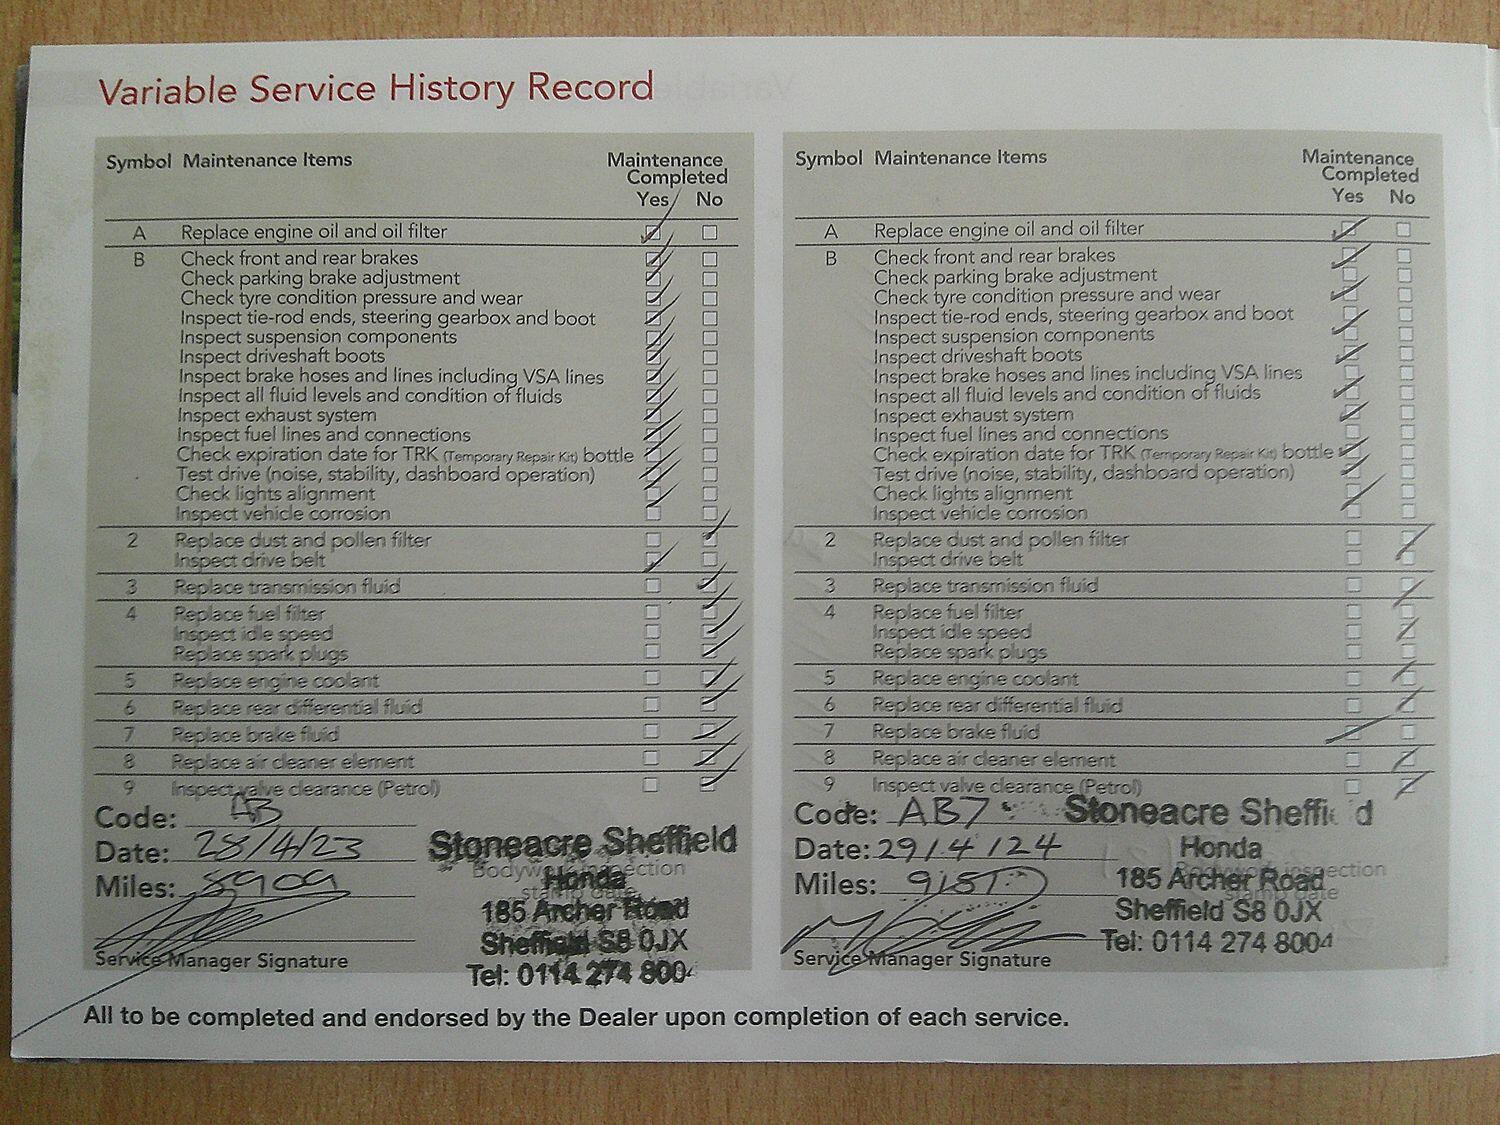 Variable Service History Record
Symbol Maintenance Items Maintenance Completed
Yes No
A Replace engine oil and oil filter
B Check front and rear brakes
Check parking brake adjustment
Check tyre condition pressure and wear
Inspect tie-rod ends, steering gearbox and boot
Inspect suspension components
Inspect driveshaft boots
Inspect brake hoses and lines including VSA lines
Inspect all fluid levels and condition of fluids
Inspect exhaust system
Inspect fuel lines and connections
Check expiration date for TRK (Temporary Repair Kit) bottle
Test drive (noise, stability, dashboard operation)
Check lights alignment
Inspect vehicle corrosion
2 Replace dust and pollen filter
Inspect drive belt
3 Replace transmission fluid
4 Replace fuel filter
Inspect idle speed
Replace spark plugs
5 Replace engine coolant
6 Replace rear differential fluid
7 Replace brake fluid
8 Replace air cleaner element
9 Inspect valve clearance (Petrol)
Code: AB
Date: 28/4/23
Miles: 8909
Service Manager Signature
Stoneacre Sheffield
Honda
185 Archer Road
Sheffield S8 0JX
Tel: 0114 274 8004
Bodywork inspection
stamp date
Symbol Maintenance Items Maintenance Completed
Yes No
A Replace engine oil and oil filter
B Check front and rear brakes
Check parking brake adjustment
Check tyre condition pressure and wear
Inspect tie-rod ends, steering gearbox and boot
Inspect suspension components
Inspect driveshaft boots
Inspect brake hoses and lines including VSA lines
Inspect all fluid levels and condition of fluids
Inspect exhaust system
Inspect fuel lines and connections
Check expiration date for TRK (Temporary Repair Kit) bottle
Test drive (noise, stability, dashboard operation)
Check lights alignment
Inspect vehicle corrosion
2 Replace dust and pollen filter
Inspect drive belt
3 Replace transmission fluid
4 Replace fuel filter
Inspect idle speed
Replace spark plugs
5 Replace engine coolant
6 Replace rear differential fluid
7 Replace brake fluid
8 Replace air cleaner element
9 Inspect valve clearance (Petrol)
Code: AB7
Date: 29/4/24
Miles:
Service Manager Signature
Stoneacre Sheffield
Honda
185 Archer Road
Sheffield S8 0JX
Tel: 0114 274 8004
Bodywork inspection
stamp date
All to be completed and endorsed by the Dealer upon completion of each service.